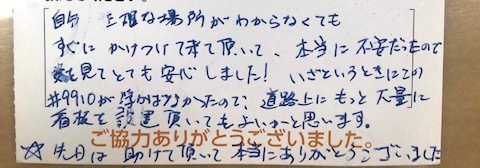 自分 正確な場所がわからなくても
すぐに かけつけて来て頂いて、本当に不安だったので
を見てとても安心しました! いざというときにこの
#9910が浮かばなかったので、道路上にもっと大量に
看板を設置頂いてもよいかと思います。
ご協力ありがとうございました。
☆先日は 助けて頂いて 本当にありがとうございました